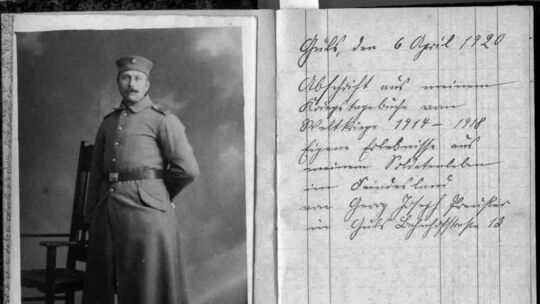 Güls, den 6 April 1920
Abschrift aus meinem
Kriegstagebuche vom
Weltkriege 1914 – 1918
Eigene Erlebnisse aus
meinem Soldatenleben
im Feindesland
von Georg Joseph Preusker
in Güls Bahnhofstraße 13